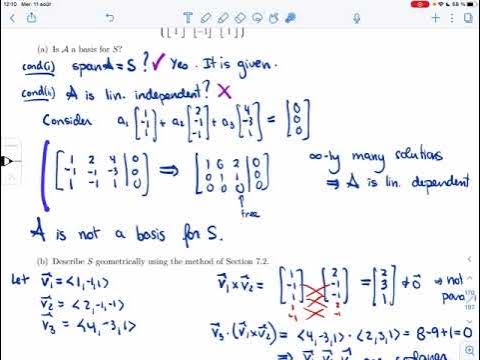 12:10 Mer. 11 août
58 %
(a) Is A a basis for S?
cond(i) span A = S? ✓ Yes. It is given.
cond(ii) A is lin. independent? ✗
Consider a₁ [1 -1 1] + a₂ [2 -1 -1] + a₃ [4 -3 1] = [0 0 0]
[1 2 4 | 0
-1 -1 -3 | 0
1 -1 1 | 0] ⇒ [1 0 2 | 0
0 1 1 | 0
0 0 0 | 0] ∞-ly many solutions
⇒ A is lin. dependent
↑
free
A is not a basis for S.
(b) Describe S geometrically using the method of Section 7.2.
Let v₁ = <1,-1,1>
v₂ = <2,-1,-1>
v₃ = <4,-3,1>
v₁ × v₂ = [1 -1 1 1 -1] [2 -1 -1 2 -1] = [2 3 1] ≠ 0 ⇒ not
para
v₃ · (v₁ × v₂) = <4,-3,1> · <2,3,1> = 8-9+1=0